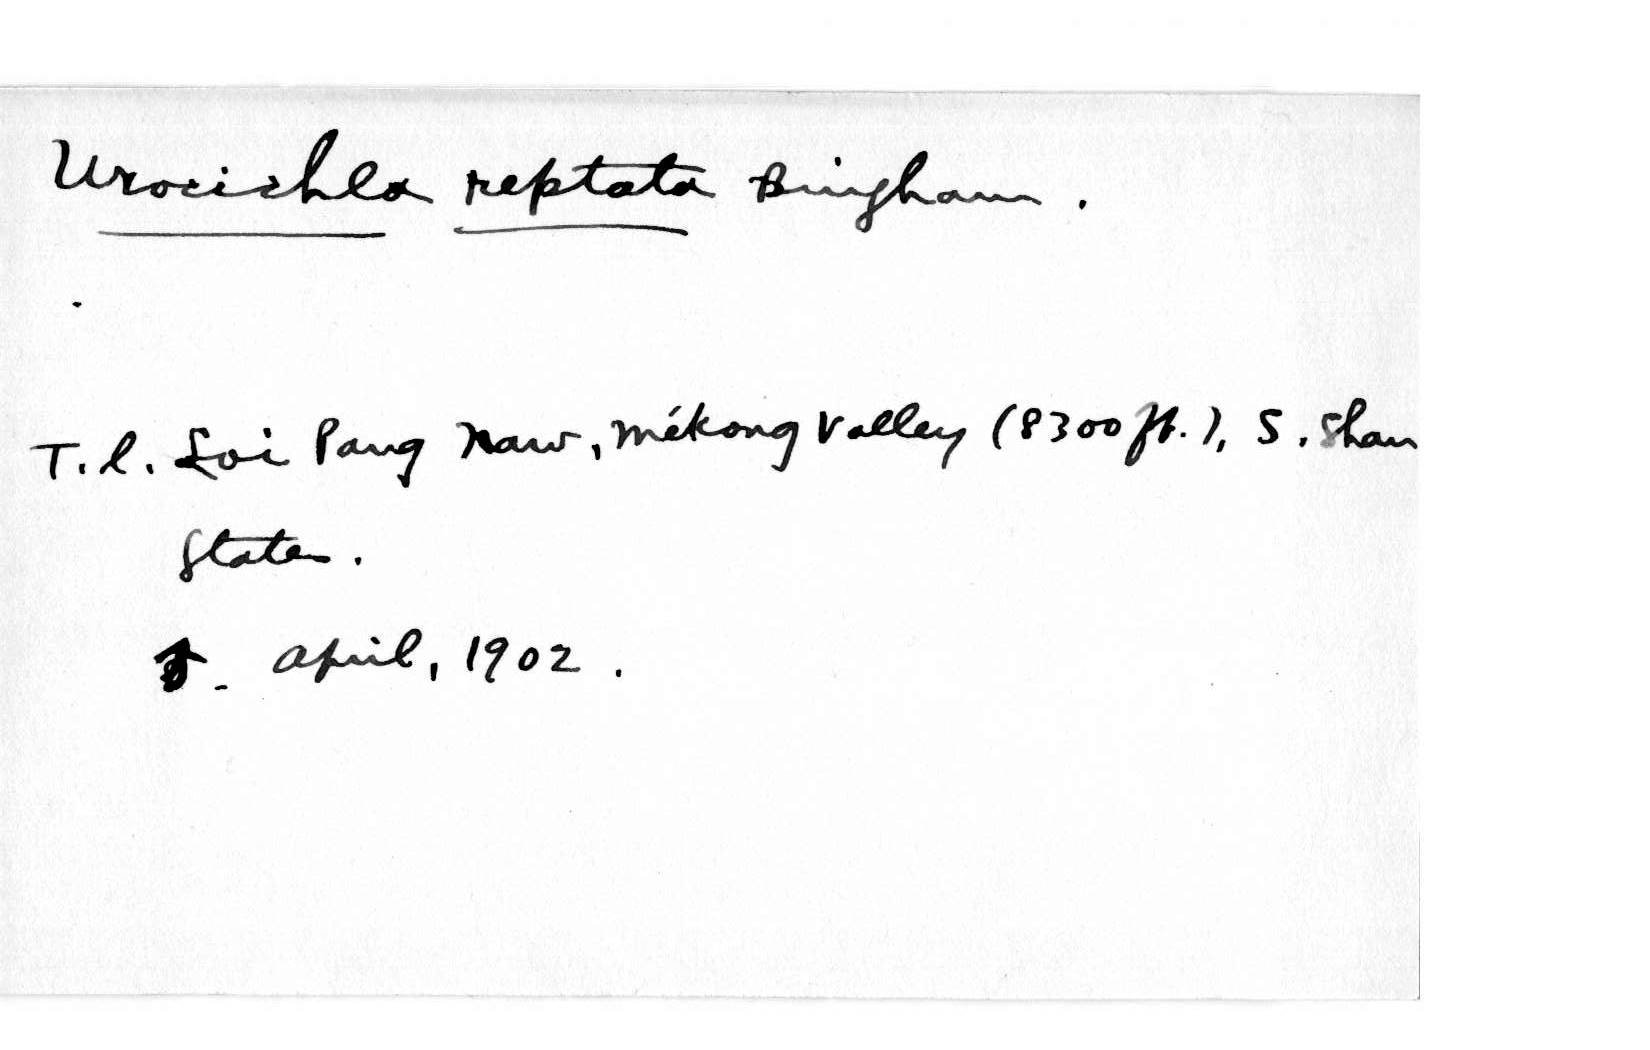 Urocichla reptata Bingham.
T.l. Loi Pang Naw, Mékong Valley (8300 ft.), S. Shan
States.
April, 1902.